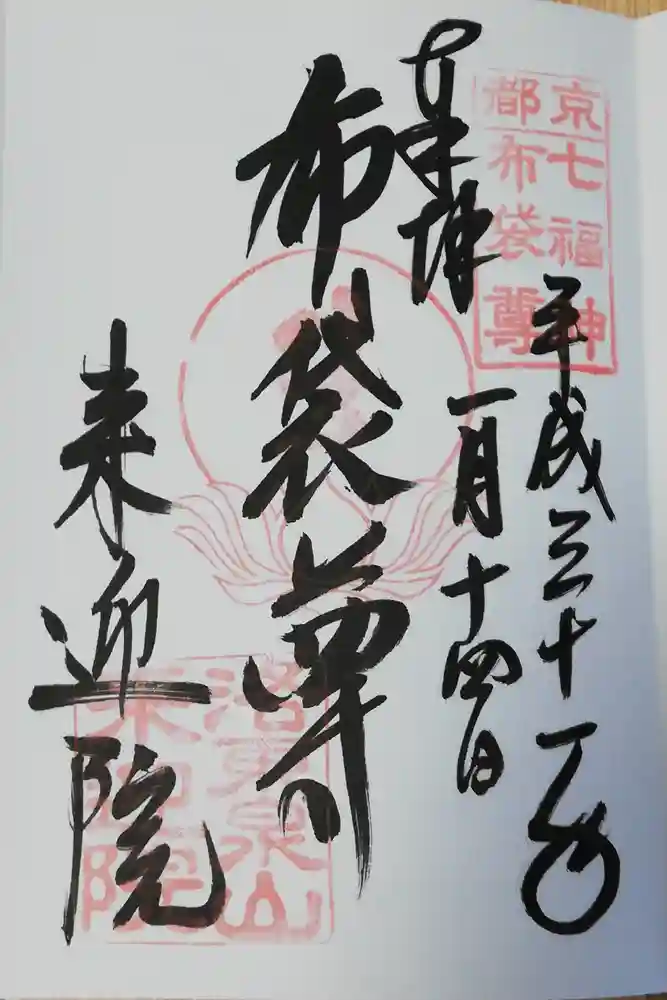 京七福神
都布袋尊
平成三十一年
一月十四日
奉拝
布袋尊
来迎院
洛東泉山
来迎院